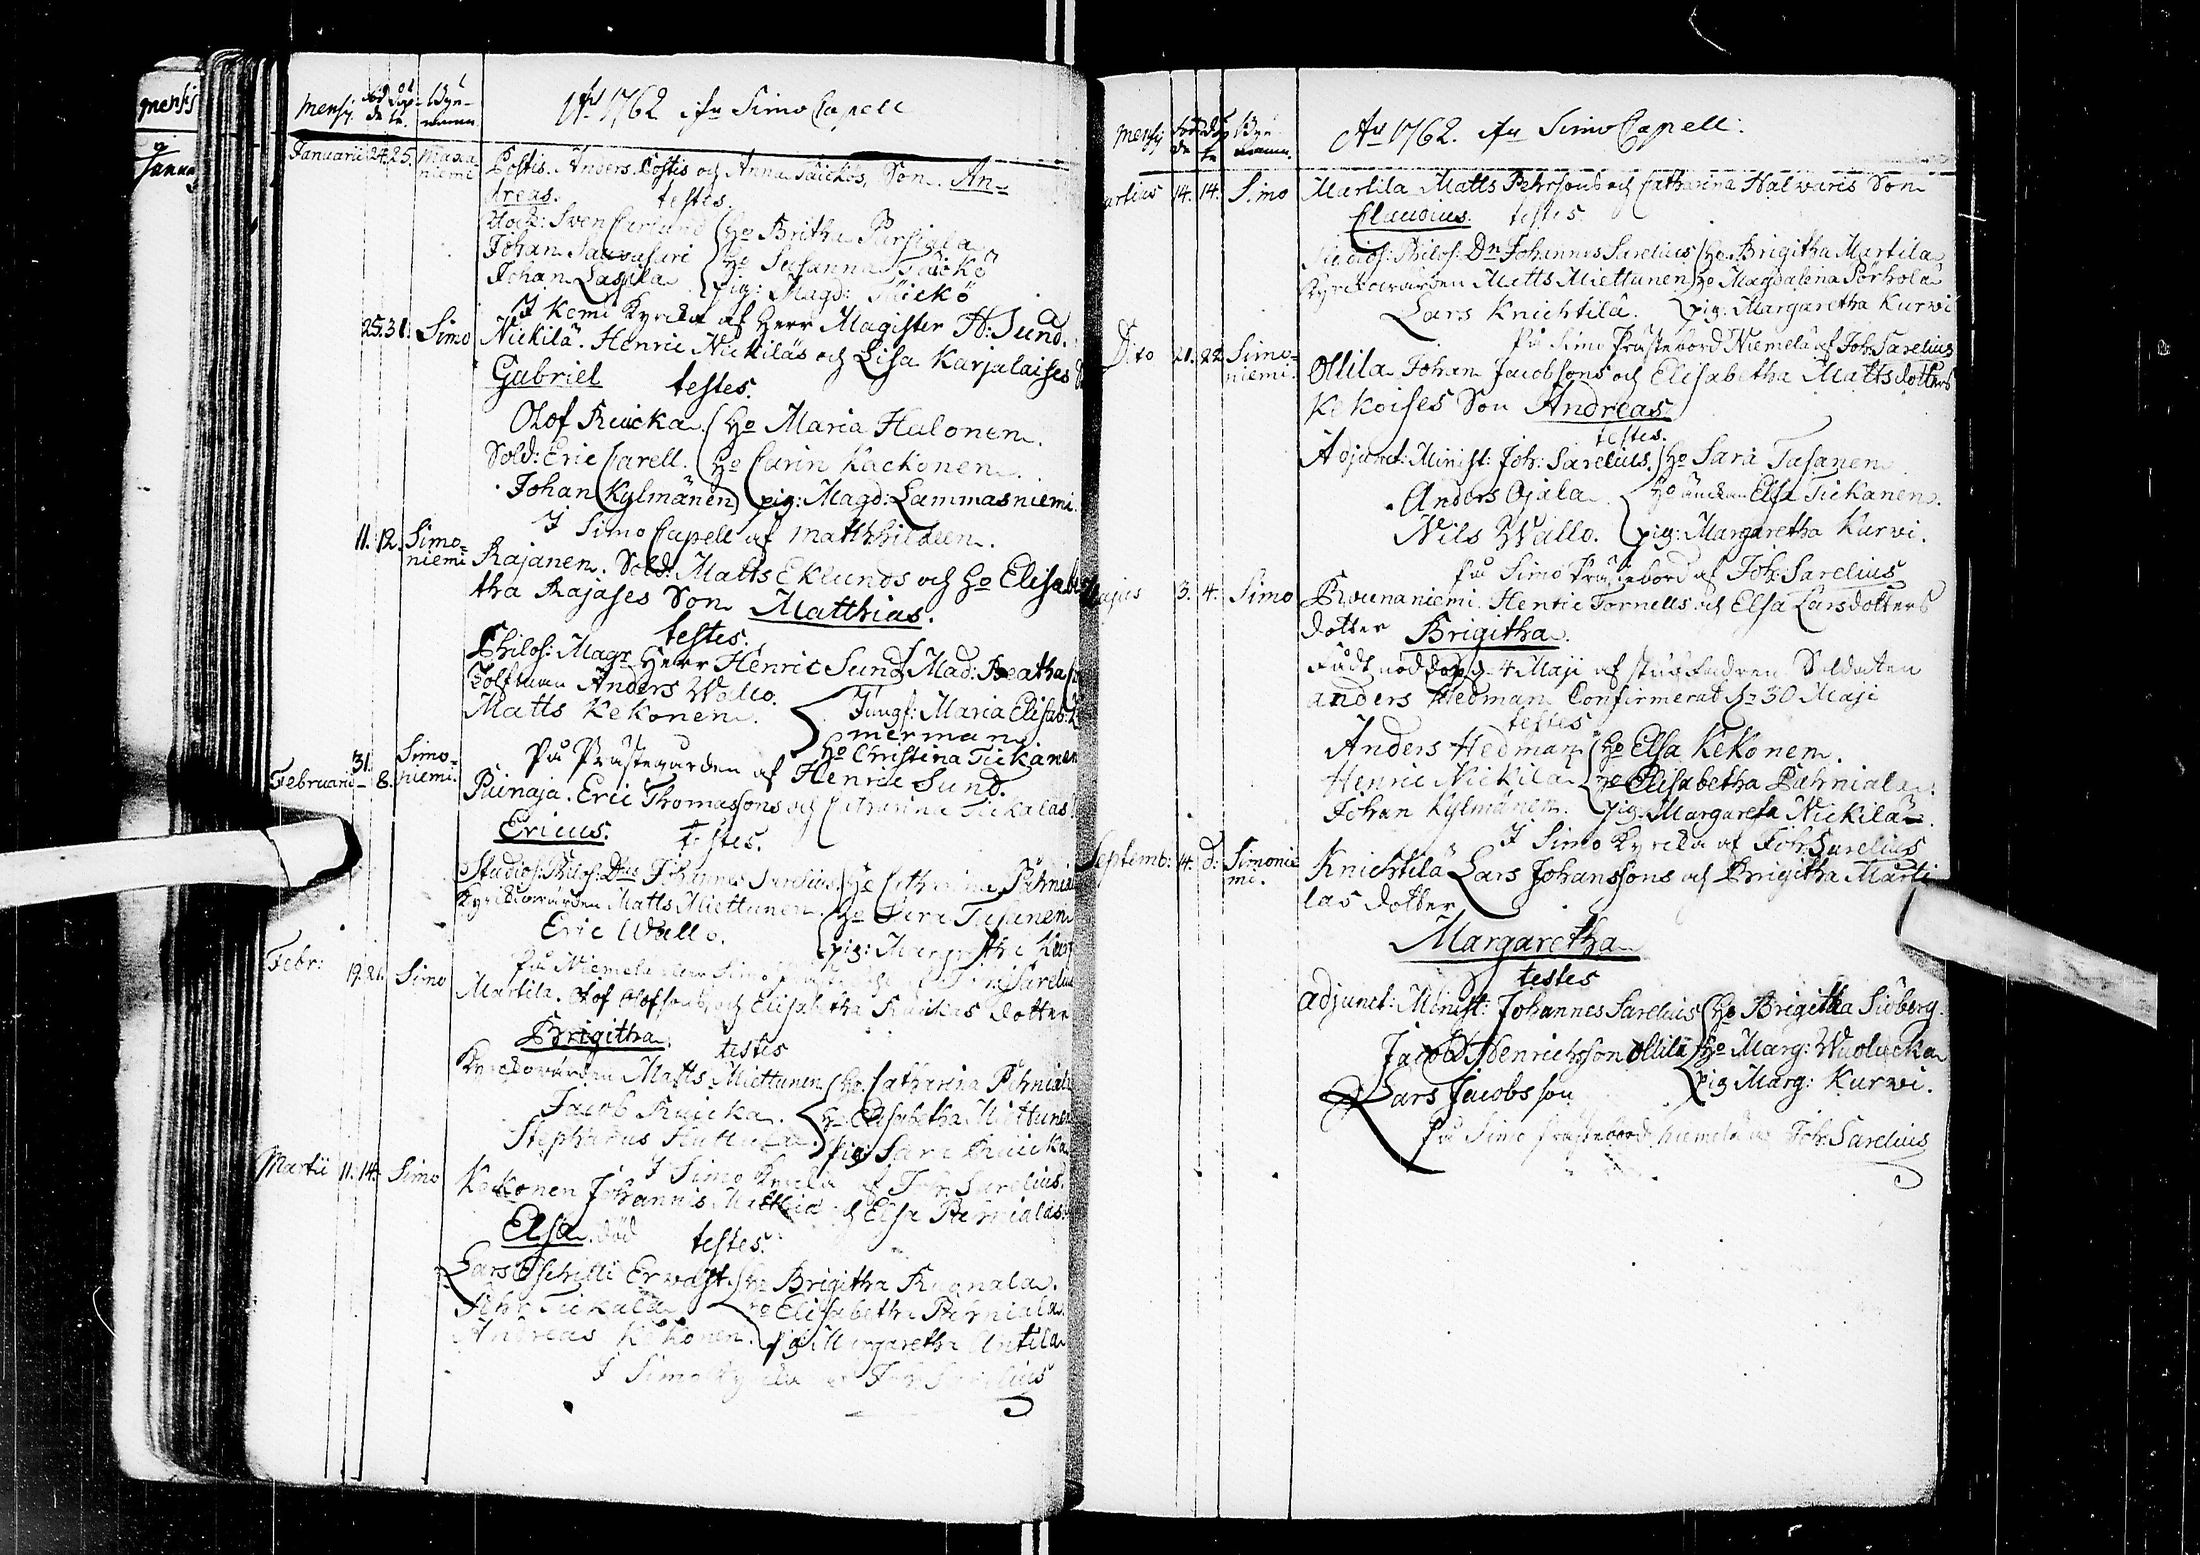 mensis
Januarii
Mensis Föd de Döp te. Byn namn A:o 1762 ifr Simo Capell
Januarii 24. 25. Maxa- Postis. Anders Postis och Anna Täickös, Son An-
niemi dreas. testes.
Sven Carlund Ho Britha
Johan Sauvusari Ho Susanna Täickö
Johan Laspila pig: Magd: Täickö
I Kemi Kyrcka af Herr Magister H: Sund.
25. 31. Simo Nickilä. Henric Nickiläs och Lisa Karjalaises
Gabriel testes.
Olof Ruicka Ho Maria Hulonen.
Sold: Eric Carell. Ho Carin Kackonen.
Johan Kylmänen pig: Magd: Lammasniemi.
I Simo Capell af Matth: Hildeen.
11. 12. Simo- Rajanen. Sold: Matts Eklunds och Ho Elisab
niemi tha Rajases Son Matthias.
testes.
Philos: Mag:r Herr Henric Sund Mad: Beatha
Tolfman Anders Wallo.
Matts Kekonen. Jungf: Maria Elisab:
merman
Ho Christina Tickanen
På Prästegården af Henric Sund.
Februarii 31. 8. Simo- niemi. Puinaja. Eric Thomassons och Catharina Tickalas
Ericus. testes.
Studios: Philos: Dns Johannes Sarelius. Ho Catharina Pehniala
Kyrckiovärden Matts Miettunen. Ho Sara Tusanen
Eric Wallo. pig: Margretha Kurv
På Niemelä eller Simo Sarelius
Febr: 19. 21. Simo Martila. Olof Olofsons och Elisabetha Ruickas dotter
Brigitha. testes
Kyrckiovärden Matts Miettunen Ho Catharina Pehniala
Jacob Ruicka. Ho Elisabetha Miettunen
Stephanus Huttula pig: Sara Ruicka
I Simo Kyrcka af Joh: Sarelius.
Martii 11. 14. Simo Kekonen Johannis Matthiæ och Elsa Pehnialas
Elsa. död testes.
Lars Ervast. Ho Brigitha Ruonala.
Pehr Tickala Ho Elisabetha Pehniala.
Andreas Kekonen. pig Margaretha Untila
I Simo Kyrcka af Joh: Sarelius
Mensis Föd de döp te Byn namn. A:o 1762. ifr Simo Capell.
Martius 14. 14. Simo Martila Matts Pehrsons och Catharina Halvaris Son
Claudius. testes
Studios: Philos: Dn Johannes Sarelius Ho Brigitha Martila
Kyrckiovärden Matts Miettunen Ho Magdalena Pörhölä
Lars Knichtilä. pig: Margaretha Kurvi
På Simo Prästebord Niemelä af Joh: Sarelius
Dito 21. 22. Simo- Ollila Johan Jacobsons och Elisabetha Mattsdotters
niemi. Kekoises Son Andreas
testes.
Adjunct: Minist: Joh: Sarelius. Ho Sara Tusanen
Anders Ojala Ho änckan Elsa Tickanen.
Nils Wallo. pig: Margaretha Kurvi.
På Simo Prästebord af Joh: Sarelius
Majus 3. 4. Simo Rounaniemi Henric Tornells och Elsa Larsdotters
dotter Brigitha.
Fådt nöddop d. 4 Maji af Soldaten
Anders Hedman Confirmerat d: 30 Maji
testes
Anders Hedman Ho Elsa Kekonen.
Henric Nickilä Ho Elisabetha Pehniala
Johan Kylmänen. pig: Margareta Nickilä.
I Simo Kyrcka af Joh: Sarelius
Septemb: 14. d: Simonie Knichtilä Lars Johanssons och Brigitha Marti
mi. las dotter
Margaretha
testes
Adjunct: Minist: Johannes Sarelius Ho Brigitha Siöberg.
Jacob Henrichsson Ollila Ho Marg: Wuolucka
Lars Jacobsson pig Marg: Kurvi.
På Simo Prästebord Niemelä af Joh: Sarelius